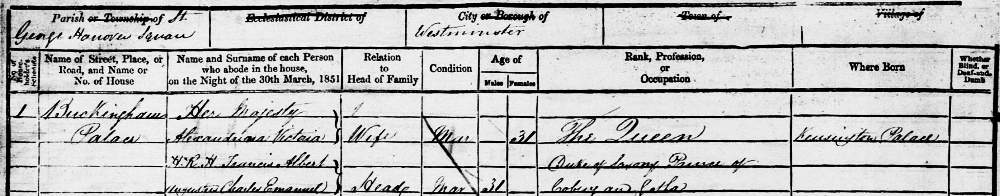 Parish or Township of St. Ecclesiastical District of City or Borough of Town of Village of
George Hanover Square Westminster
Name of Street, Place, or Road, and Name or No. of House
Name and Surname of each Person who abode in the house, on the Night of the 30th March, 1851
Relation to Head of Family
Condition
Age of
Males Females
Rank, Profession, or Occupation
Where Born
Whether Blind, or Deaf-and-Dumb
1 Buckingham Her Majesty
Palace Alexandrina Victoria Wife Mar 31 The Queen Kensington Palace
H.R.H. Francis Albert Duke of Saxony Prince of
Augustus Charles Emanuel Head Mar 31 Coburg and Gotha